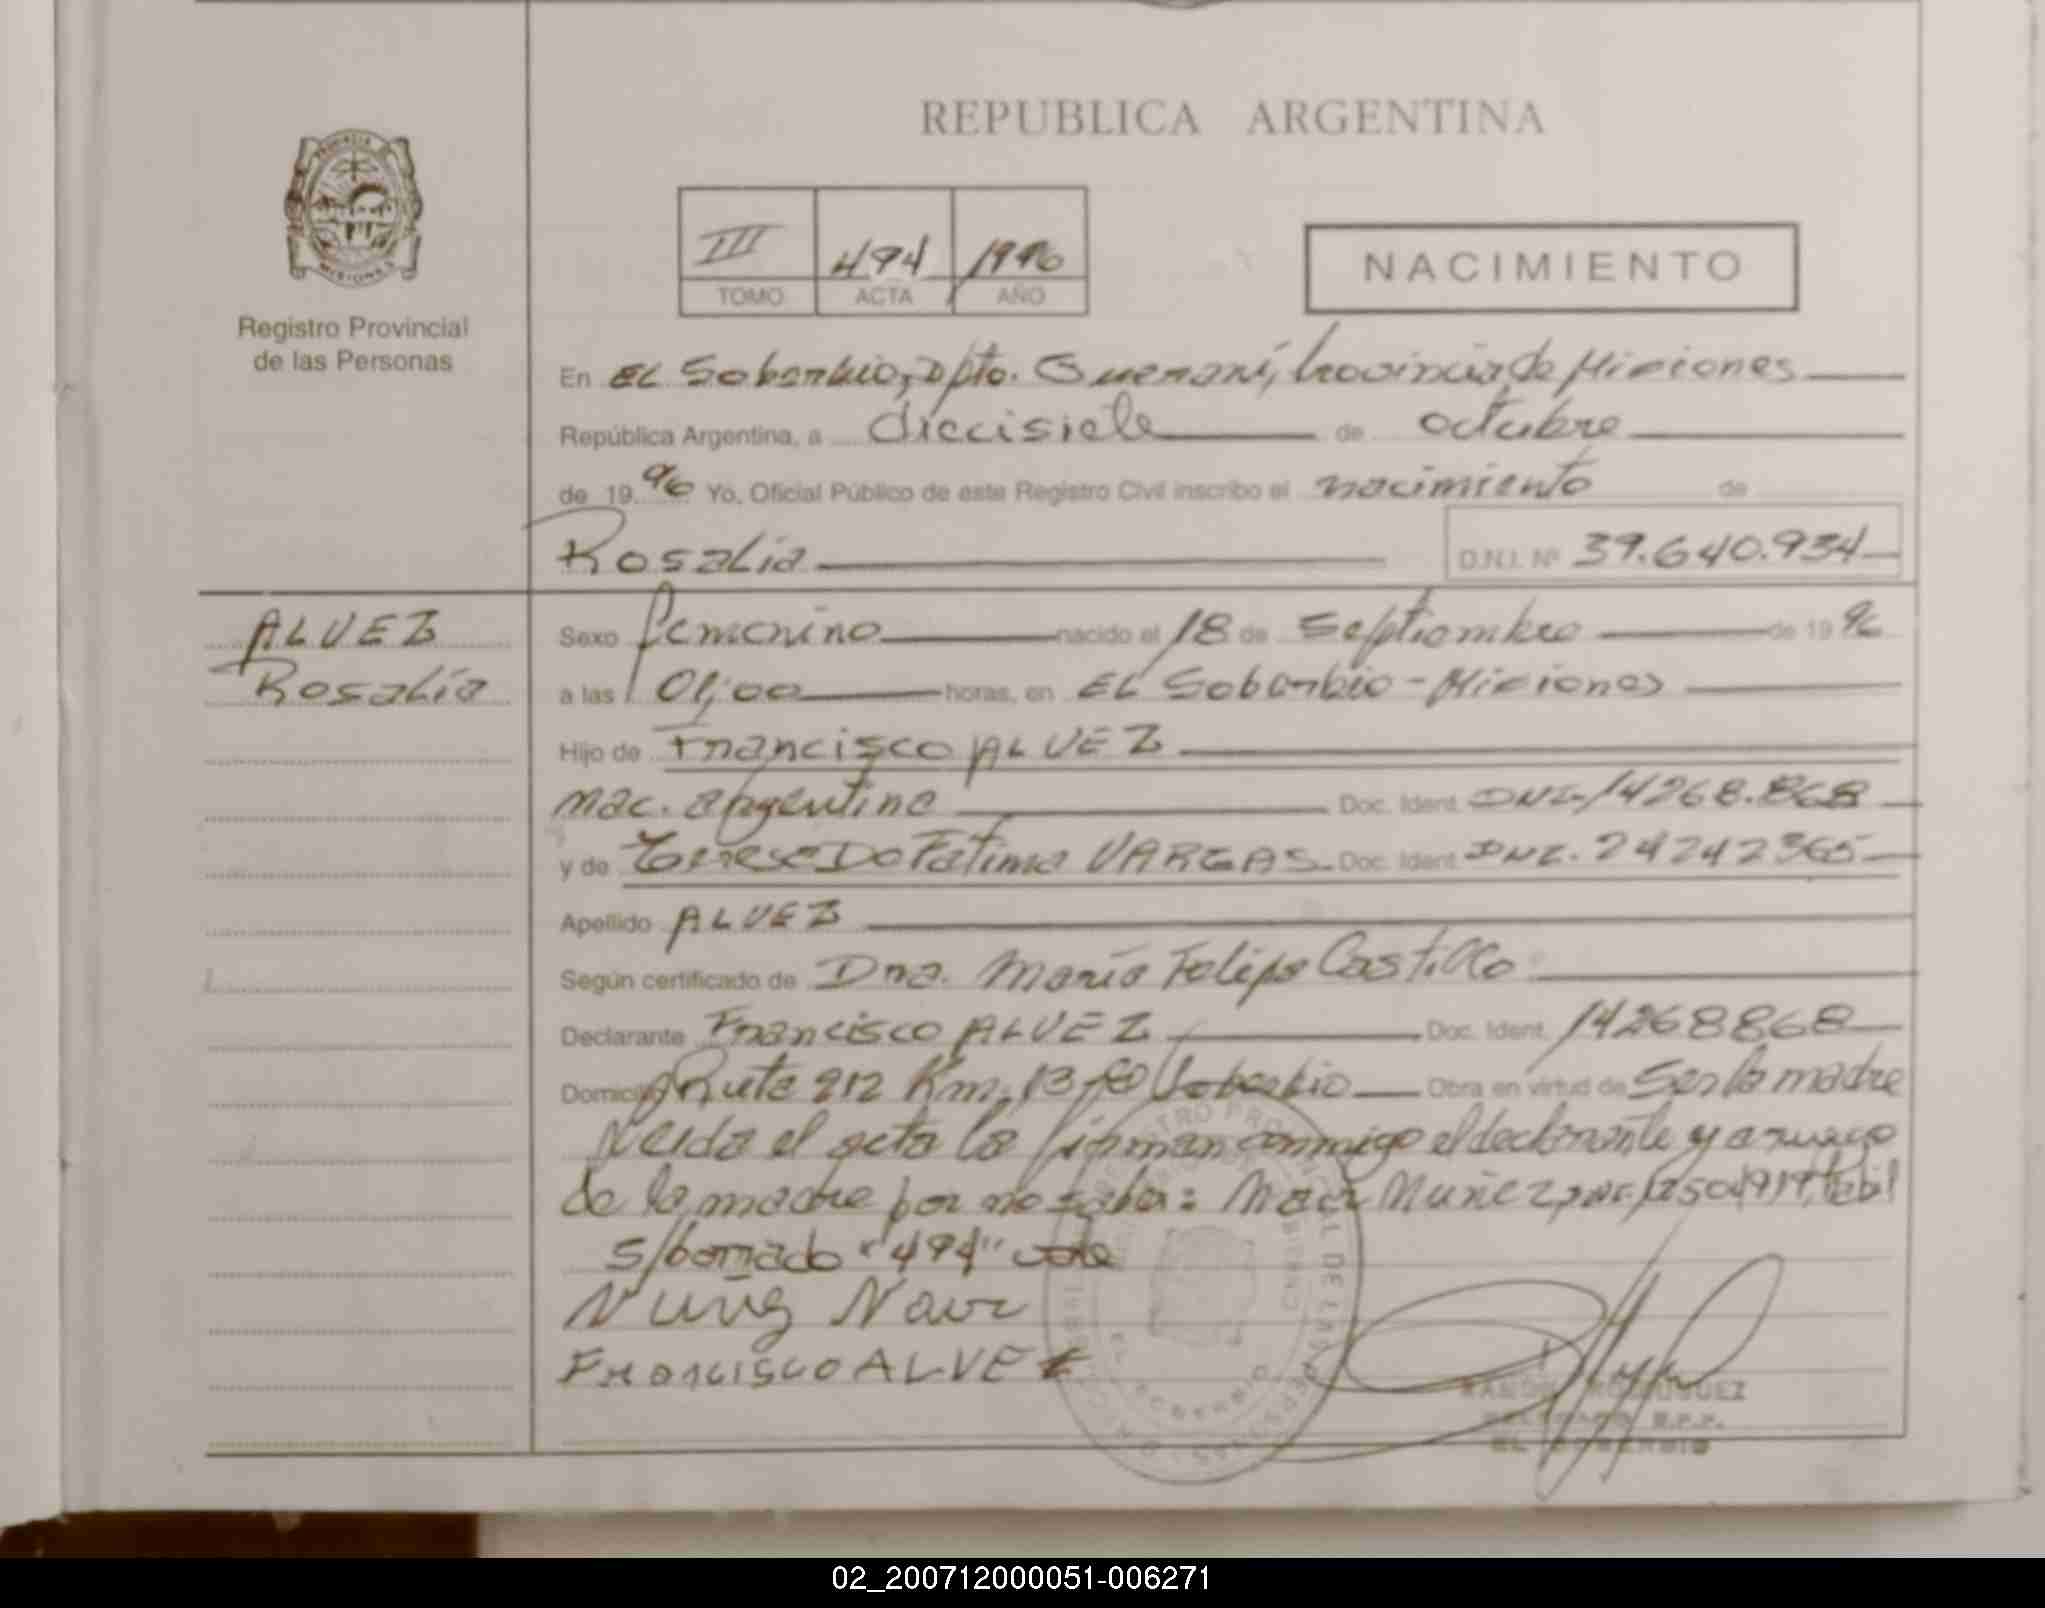 REPUBLICA ARGENTINA
PROVINCIA DE MISIONES
Registro Provincial
de las Personas
III 494 1996
TOMO ACTA AÑO
NACIMIENTO
En EL Soberbio, Dpto. Guaraní, Provincia de Misiones
República Argentina, a diecisiete de octubre
de 1996 Yo, Oficial Público de este Registro Civil inscribo el nacimiento de
Rosalía D.N.I. Nº 39.640.934
ALVEZ
Rosalía
Sexo femenino nacido el 18 de Septiembre de 1996
a las 01,00 horas, en EL Soberbio - Misiones
Hijo de Francisco ALVEZ
nac. argentina Doc. Ident. DNI. 14268.868
y de Terese Do Fatima VARGAS Doc. Ident. DNI. 24242365
Apellido ALVEZ
Según certificado de Dna. María Felipa Castillo
Declarante Francisco ALVEZ Doc. Ident. 14268868
Domicilio Ruta 212 Km. 13 - El Soberbio Obra en virtud de Ser la madre
Leida el acta la firman conmigo el declarante y a ruego
de la madre por no saber: Muñez DNI.
s/borrado "494" vale
FRANCISCO ALVEZ
REGISTRO PROVINCIAL DE LAS PERSONAS
EL SOBERBIO
RAMON RODRIGUEZ
DELEGADO R.P.P.
EL SOBERBIO
02_200712000051-006271